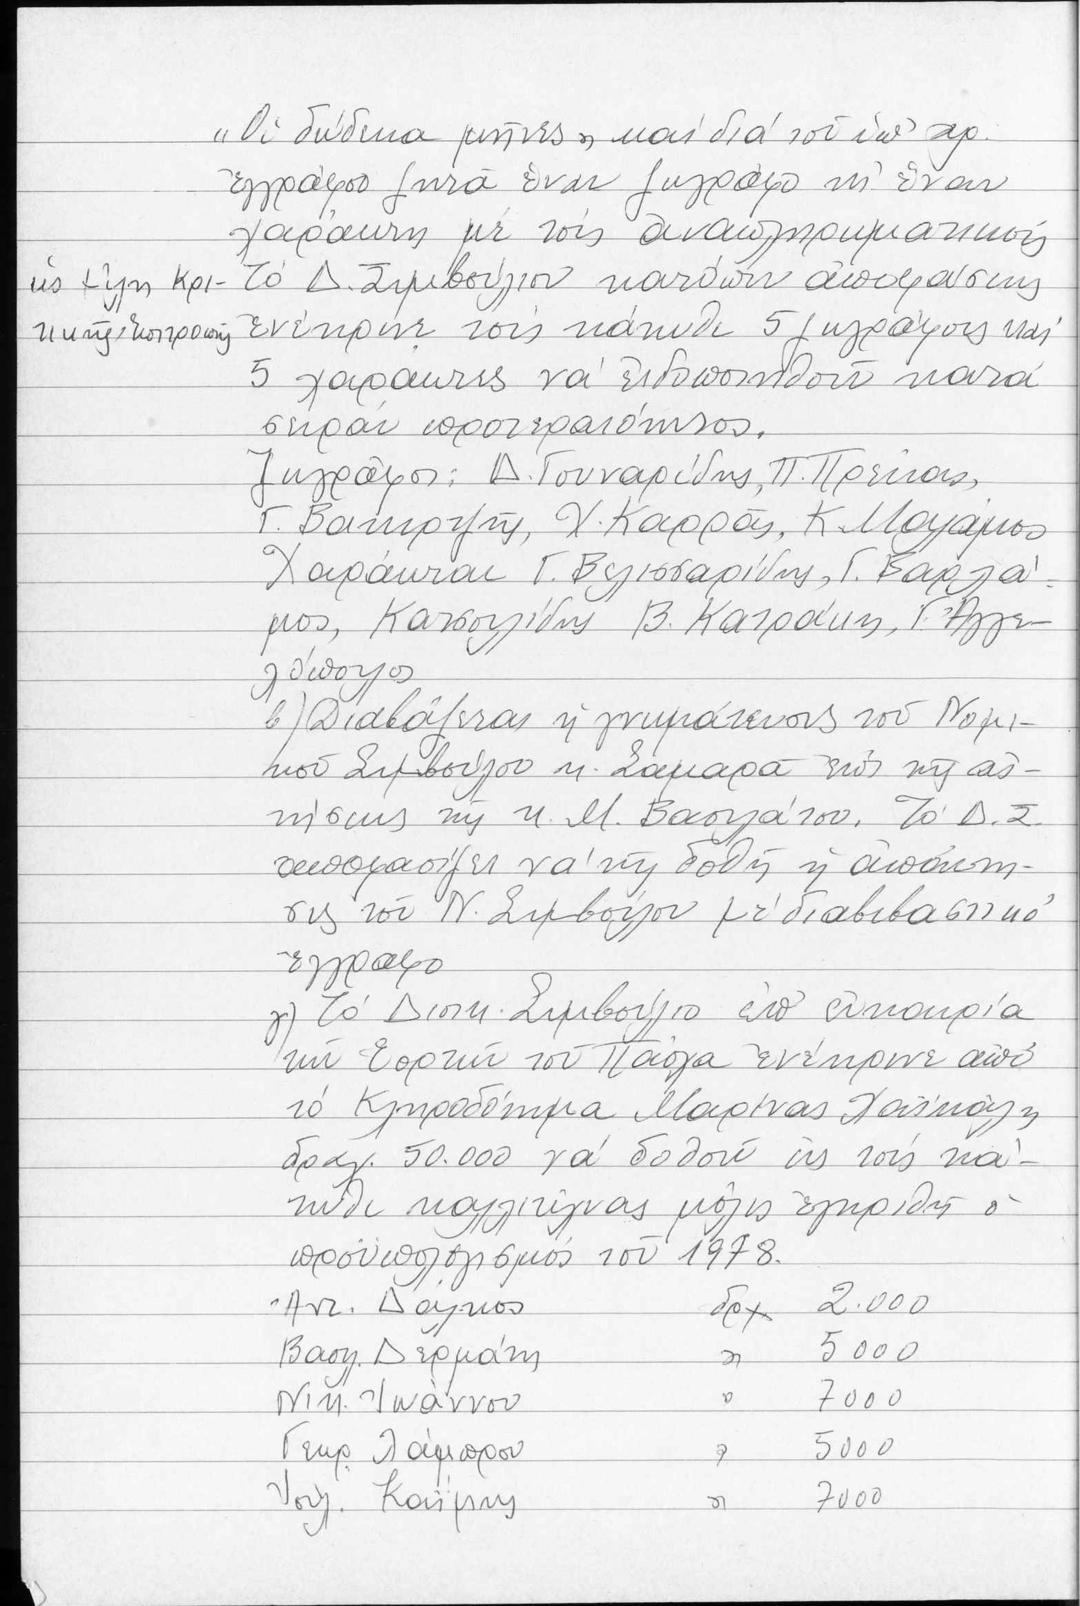 „Οἱ δώδεκα μῆνες" καί διά τοῦ ὑπ' ἀρ.
ἐγγράφου ζητᾶ ἕναν ζωγράφο κι' ἕναν
χαράκτη μέ τούς ἀναπληρωματικούς
ὡς μέλη Κρι-
τικῆς Ἐπιτροπῆς
Τό Δ. Συμβούλιον κατόπιν ἀποφάσεως
ἐνέκρινε τούς κάτωθι 5 ζωγράφους καί
5 χαράκτες νά εἰδοποιηθοῦν κατά
σειράν προτεραιότητος.
Ζωγράφοι: Δ. Γουναρίδης, Π. Πρέκας,
Γ. Βακιρτζῆς, Χ. Καρράς, Κ. Μαλάμος
Χαράκται Γ. Βελισσαρίδης, Γ. Βαρλά-
μος, Κατσουλίδης Β. Κατράκη, Γ. Ἀγγε-
λόπουλος
β) Διαβάζεται ἡ γνωμάτευσις τοῦ Νομι-
κοῦ Συμβούλου κ. Σαμαρᾶ ἐπί τῆς αἰ-
τήσεως τῆς κ. Μ. Βασιλάτου. Τό Δ.Σ.
ἀποφασίζει νά τῆς δοθῆ ἡ ἀπάντη-
σις τοῦ Ν. Συμβούλου μέ διαβιβαστικό
ἔγγραφο
γ) Τό Διοικ. Συμβούλιο ἐπ' εὐκαιρία
τῶν Ἑορτῶν τοῦ Πάσχα ἐνέκρινε ἀπό
τό Κληροδότημα Μαρίνας
δραχ. 50.000 νά δοθοῦν εἰς τούς κά-
τωθι καλλιτέχνας μόλις ἐγκριθῆ ὁ
προϋπολογισμός τοῦ 1978.
Ἀντ. Δάγκος δρχ 2.000
Βασιλ. Δερμάτης " 5000
Νικ. Ἰωάννου " 7000
Γεωρ. Λάμπρου " 5000
Ἰουλ. Καΐμης " 7000